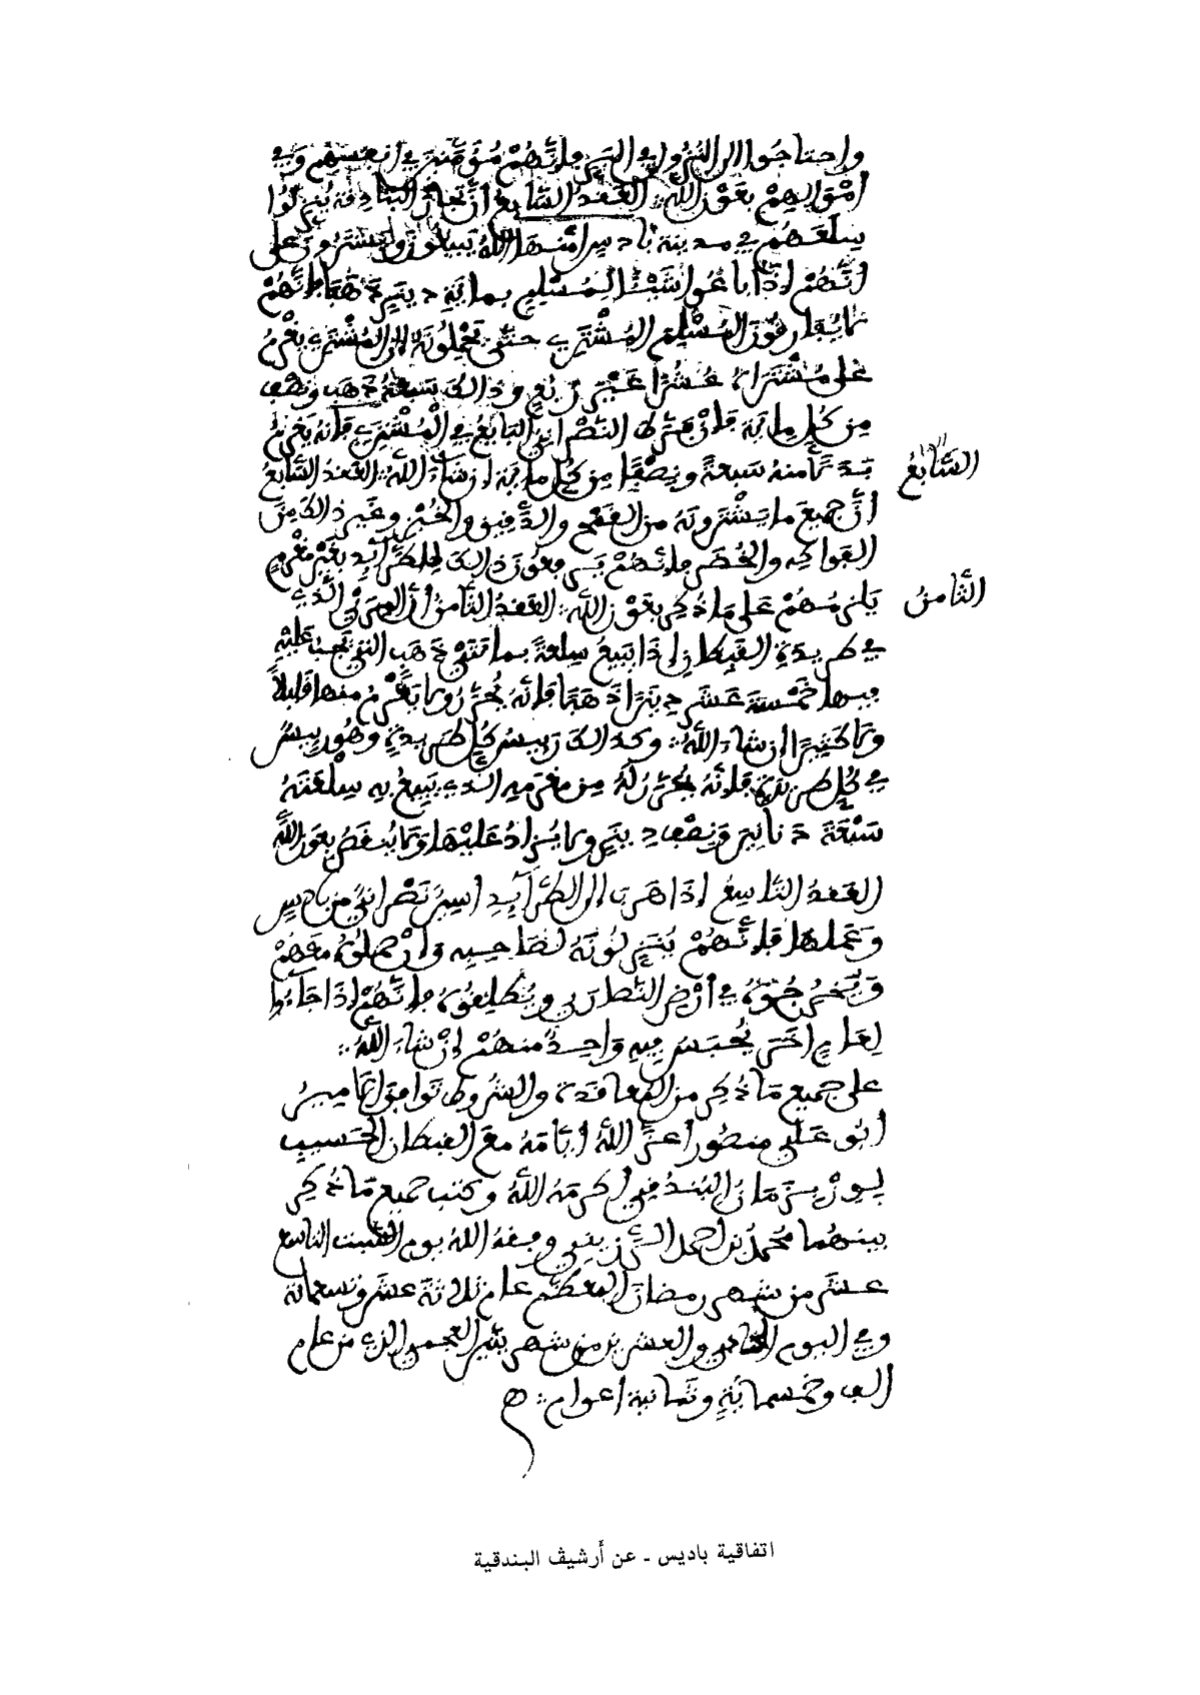 واحتاجوا إلى النزول في البر فإنهم مؤمنين في أنفسهم وفي
أموالهم بعون الله العقد السابع أن تجار البنادقة ينزلوا
سلعهم في مدينة بادس أمنها الله يبيعون ويشترون على
أنهم إذا باعوا شيئا لمسلم بماية دينير ذهبا فإنهم
لا يفارقون المسلم المشتري حتى تحملونه إلى المشتري يغرم
على مشتراه عشرا غير ربع وذالك سبعة ذهب ونصف
من كل ماية فإن هرب النصراني البايع في المشتري فإنه يغرم
ثمنه سبعة ونصفا من كل ماية إن شاء الله العقد السابع
السَّابعُ
أن جميع ما يشترونه من القمح والدقيق والخبز وغير ذالك من
الفواكه والخضر فإنهم يرفعون ذالك للطرايد بغير مغرم
يلزمهم على ما ذكر بعون الله العقد الثامن أن الذي
الثَّامنُ
في طريدة القبطان إذا يبيع سلعة بمايتين ذهب التي تجب عليه
فيها خمسة عشر دينرا ذهبا فإنه يحرر ولا يغرم منها قليلا
ولا كثيرا إن شاء الله وكذالك رييس كل طريدة وهو رييس
في كل طريدة فإنه يحرر له من مغرمه الذي يبيع به سلعته
سبعة دنانير ونصف دينير ولا يزاد عليها ولا ينقص بعون الله
العقد التاسع إذا هرب إلى الطرايد أسير نصراني من بادس
وعملها فإنهم ينزلونه لصاحبه وإن حملوه معهم
ويخرجوه في أرض النصارى ويطلقوه فإنهم إذا جاءوا
لعام اخر يحبس فيه واحد منهم إن شاء الله
على جميع ما ذكر من المعاقدة والشروط توافق الأمير
أبو علي منصور أعز الله أيامه مع القبطان الحسيب
البندقي أكرمه الله وكتب جميع ما ذكر
بينهما محمد بن أحمد وفقه الله يوم السبت التاسع
عشر من شهر رمضان المعظم عام ثلاثة عشر وتسعماية
وفي اليوم والعشرين من شهر ينير العجمي الذي من عام
ألف وخمسماية وثمانية أعوام
اتفاقية باديس - عن أرشيف البندقية